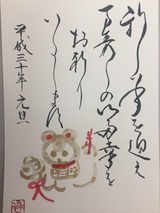 新年を迎え
万事の御多幸を
お祈り
いたします
平成三十年 元旦